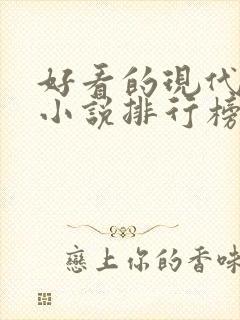 好看的現代
小說排行榜
戀上你的香味